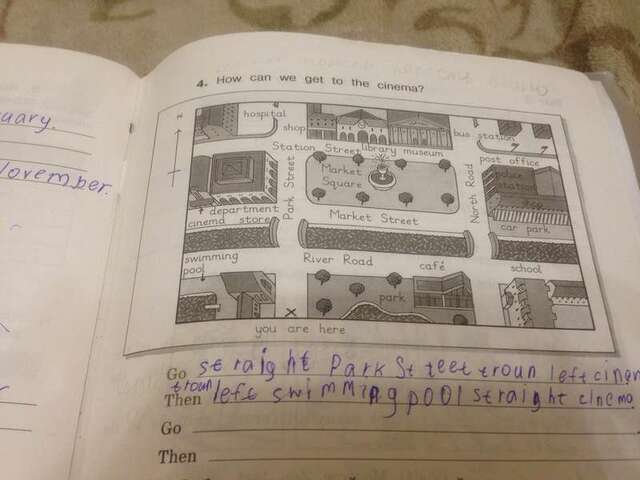 uary.
November.
4. How can we get to the cinema?
N
hospital
shop
bus station
post office
Station Street
library
museum
department store
cinema
Park Street
Market Square
Market Street
North Road
police station
zoo
car park
swimming pool
River Road
café
school
park
you are here
Go straight Park Street troun left cinem
Then troun left swimming pool straight cinema
Go
Then